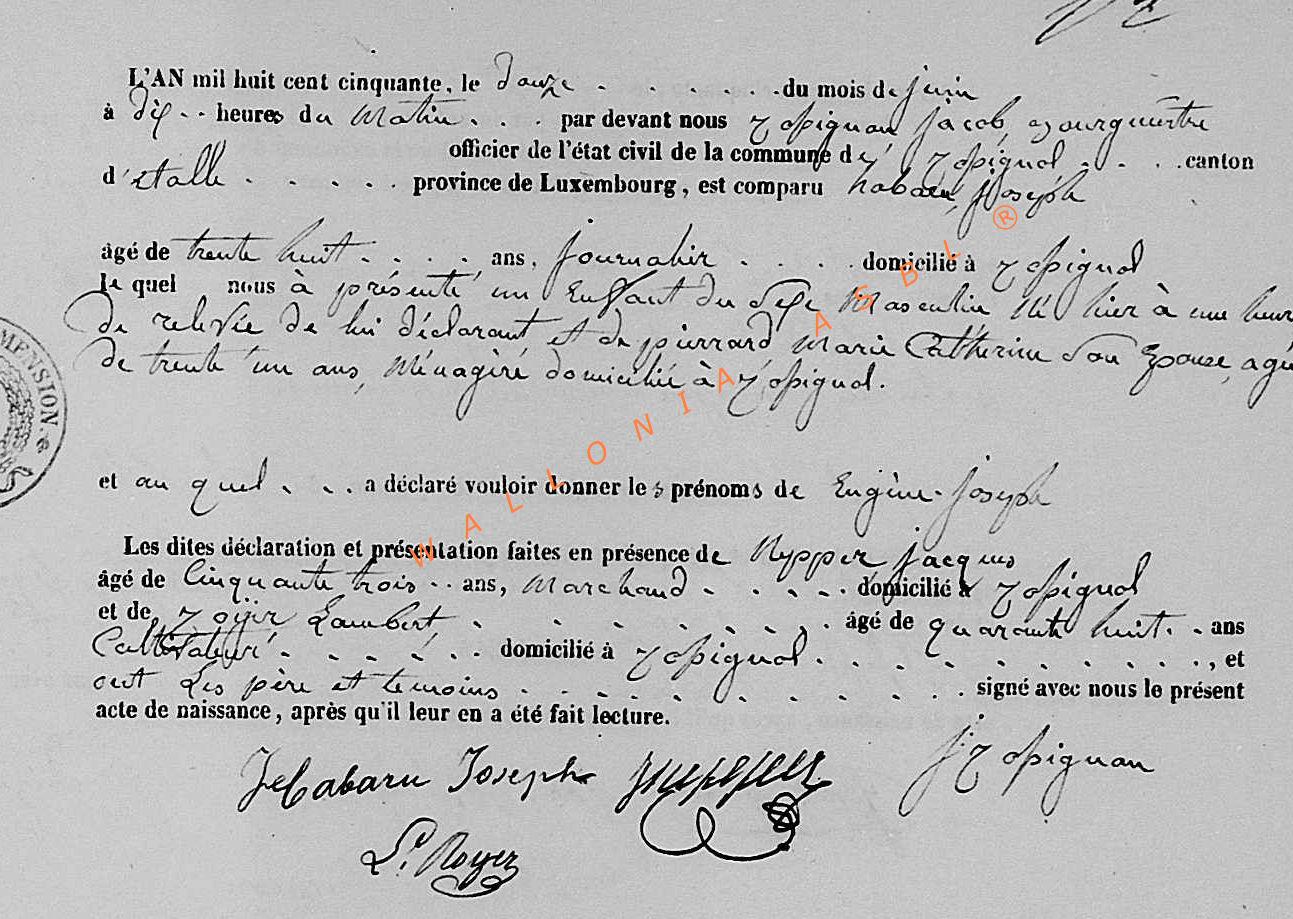 L'AN mil huit cent cinquante, le douze . . . . . . . du mois de juin
à dix . . heures du Matin . . . par devant nous Rossignon jacob, Bourgmestre
officier de l'état civil de la commune de Rossignol . . . . canton
d'etalle . . . . . province de Luxembourg, est comparu habaru, joseph
âgé de trente huit . . . . ans, journalier . . . . domicilié à Rossignol
le quel nous à présenté un Enfant du Sexe Masculin Né hier à une heure
de relevée de lui déclarant et de pierrard Marie Catherine son Epouse, agée
de trente un ans, Ménagère domiciliée à Rossignol.
MENSION.
et au quel . . . a déclaré vouloir donner les prénoms de Eugène-joseph
Les dites déclaration et présentation faites en présence de jacques
âgé de Cinquante trois . . ans, Marchand . . . . . domicilié à Rossignol
et de Royer Lambert . . . . . . . . âgé de quarante huit . . ans
Cultivateur . . . . . . domicilié à Rossignol . . . . . . . . . . ., et
ont Les père et temoins . . . . . . . . . signé avec nous le présent
acte de naissance, après qu'il leur en a été fait lecture.
Habaru Joseph
j Rossignon
L. Royer
WALLONIA ASBL ®